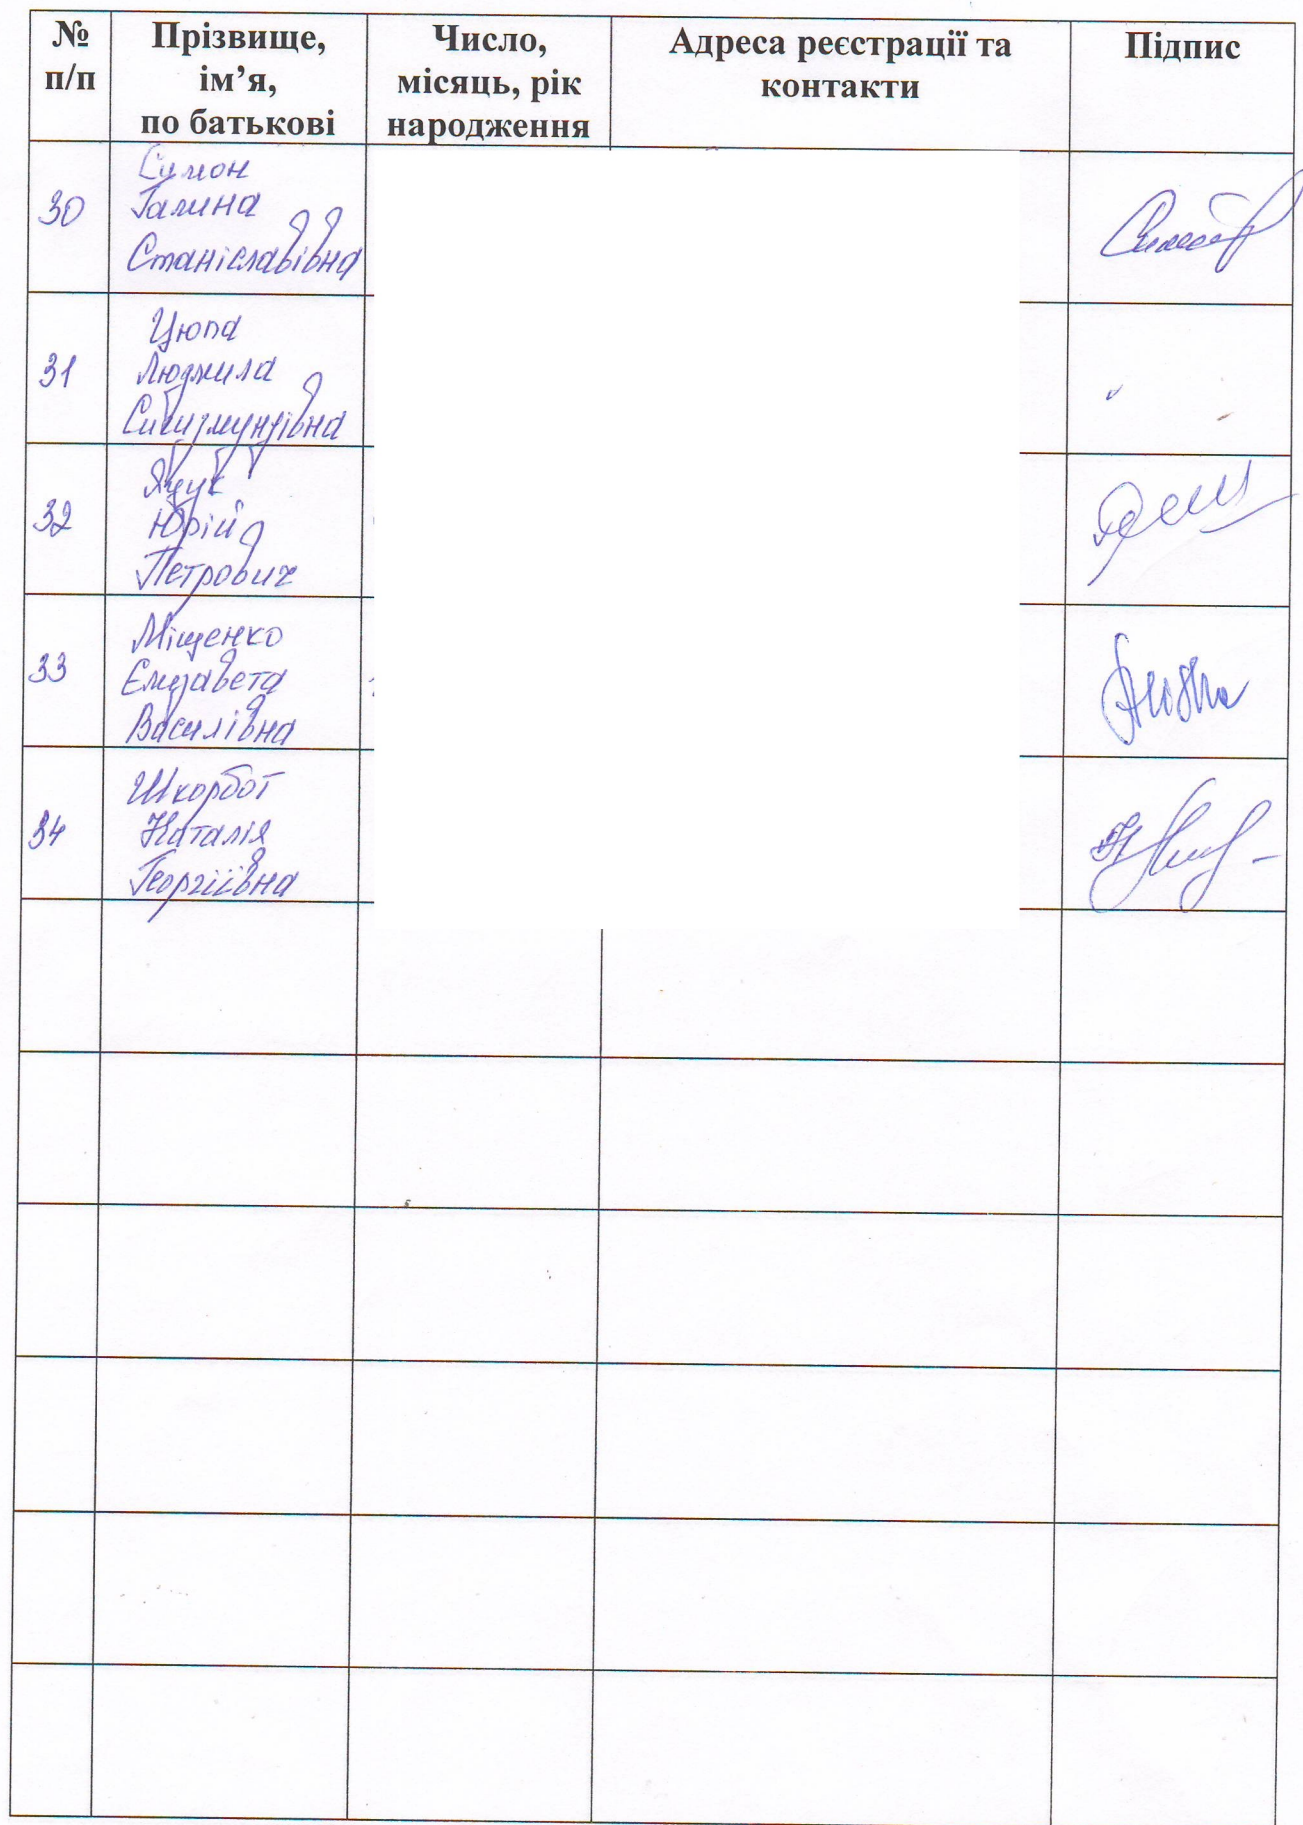 № п/п
Прізвище, ім’я, по батькові
Число, місяць, рік народження
Адреса реєстрації та контакти
Підпис
30
Симон
Галина
Станіславівна
31
Цюпа
Людмила
Сигизмундівна
32
Яцук
Юрій
Петрович
33
Міщенко
Єлизавета
Василівна
34
Шкорбот
Наталія
Георгіївна